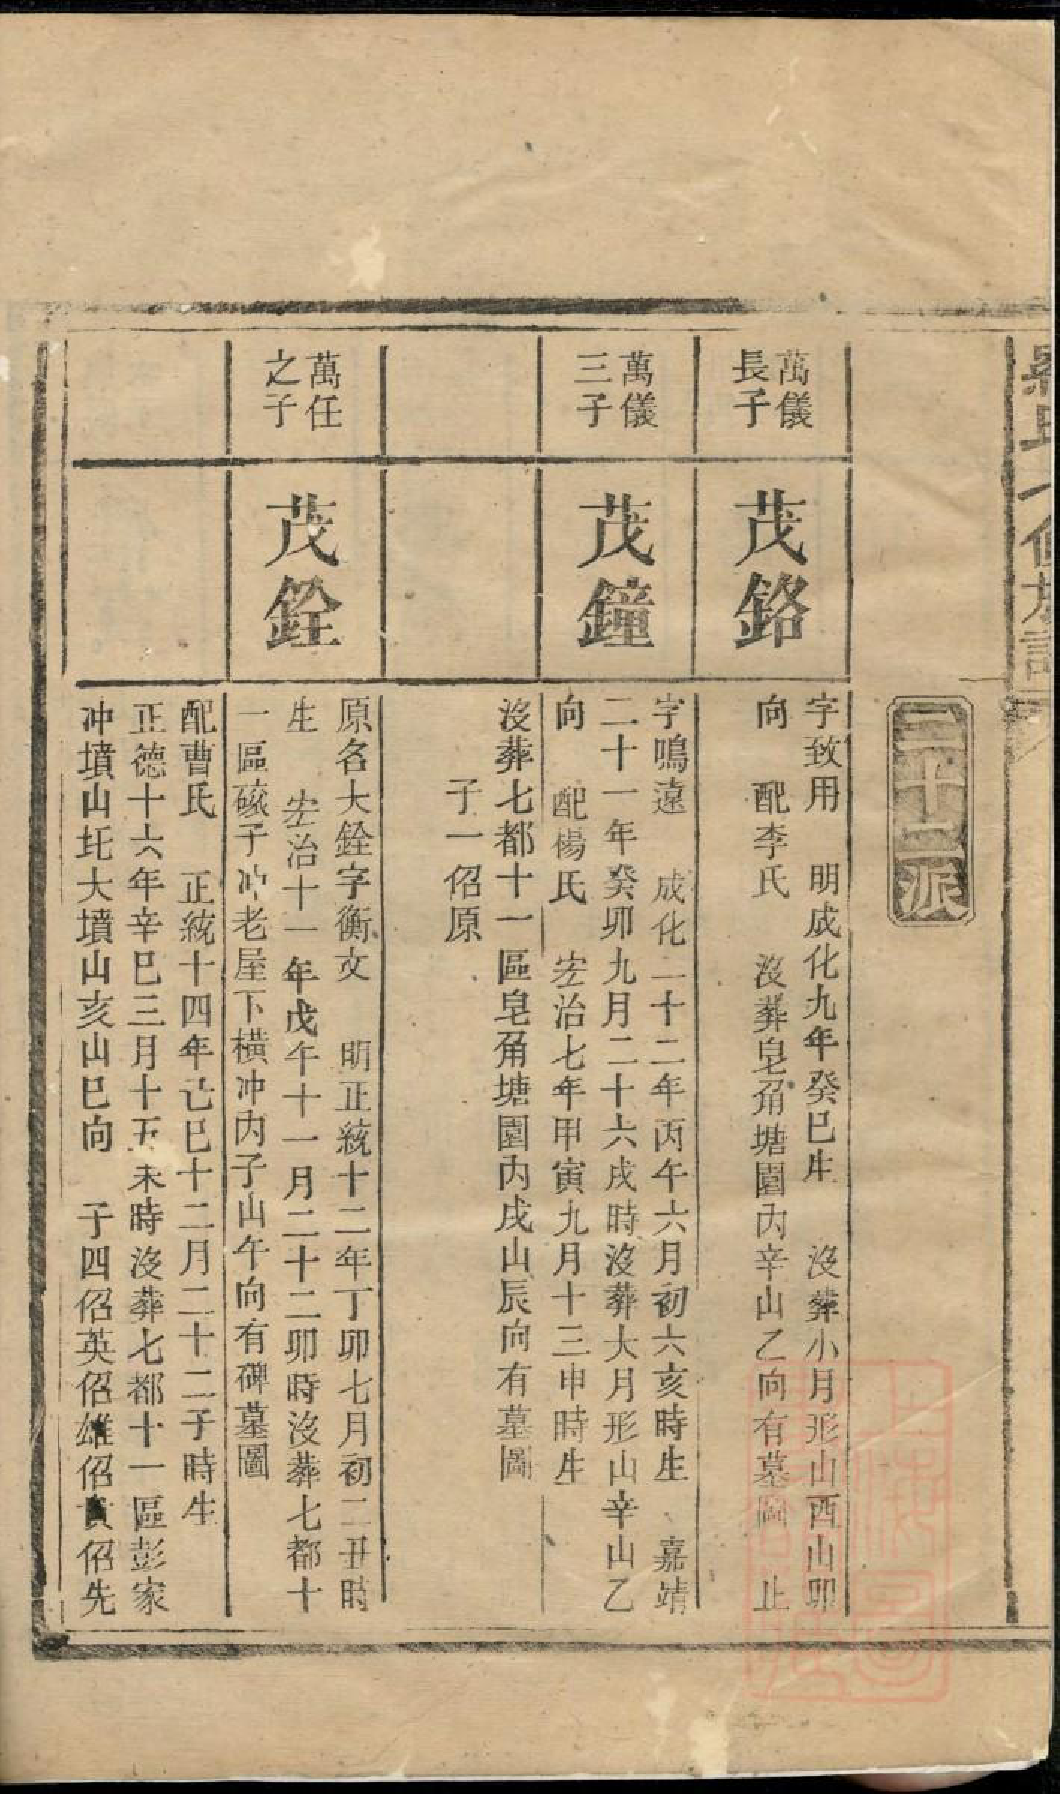 二十一派
萬儀
長子
茂鉻
字致用　明成化九年癸巳生　沒葬小月形山酉山卯
向　配李氏　沒葬皂角塘園內辛山乙向有墓圖　止
萬儀
三子
茂鐘
字鳴遠　成化二十二年丙午六月初六亥時生　嘉靖
二十一年癸卯九月二十六戌時沒葬大月形山辛山乙
向　配楊氏　宏治七年甲寅九月十三申時生
沒葬七都十一區皂角塘園內戌山辰向有墓圖
子一佋原
萬任
之子
茂銓
原名大銓字衡文　明正統十二年丁卯七月初二丑時
生　宏治十一年戊午十一月二十二卯時沒葬七都十
一區磁子冲老屋下橫冲內子山午向有碑墓圖
配曹氏　正統十四年己巳十二月二十二子時生
正德十六年辛巳三月十五未時沒葬七都十一區彭家
冲墳山圫大墳山亥山巳向　子四佋英佋雄佋佋先